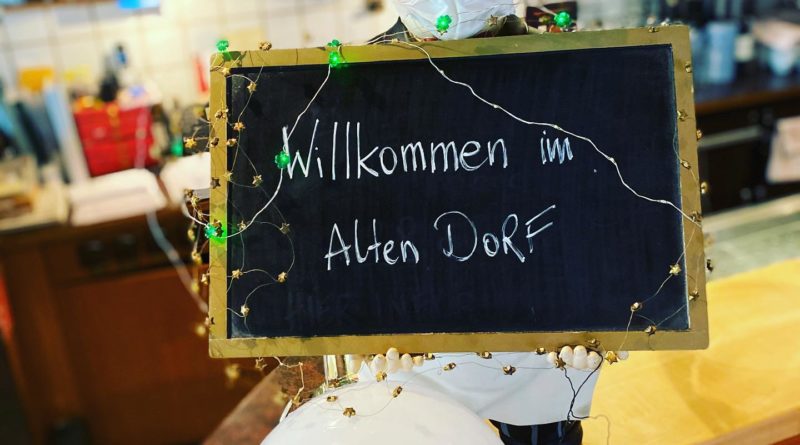 Willkommen im
Alten DoRF